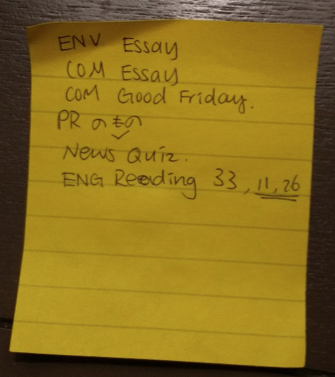 ENV Essay
COM Essay
COM Good Friday.
PR のもの
News Quiz.
ENG Reading 33, 11, 26